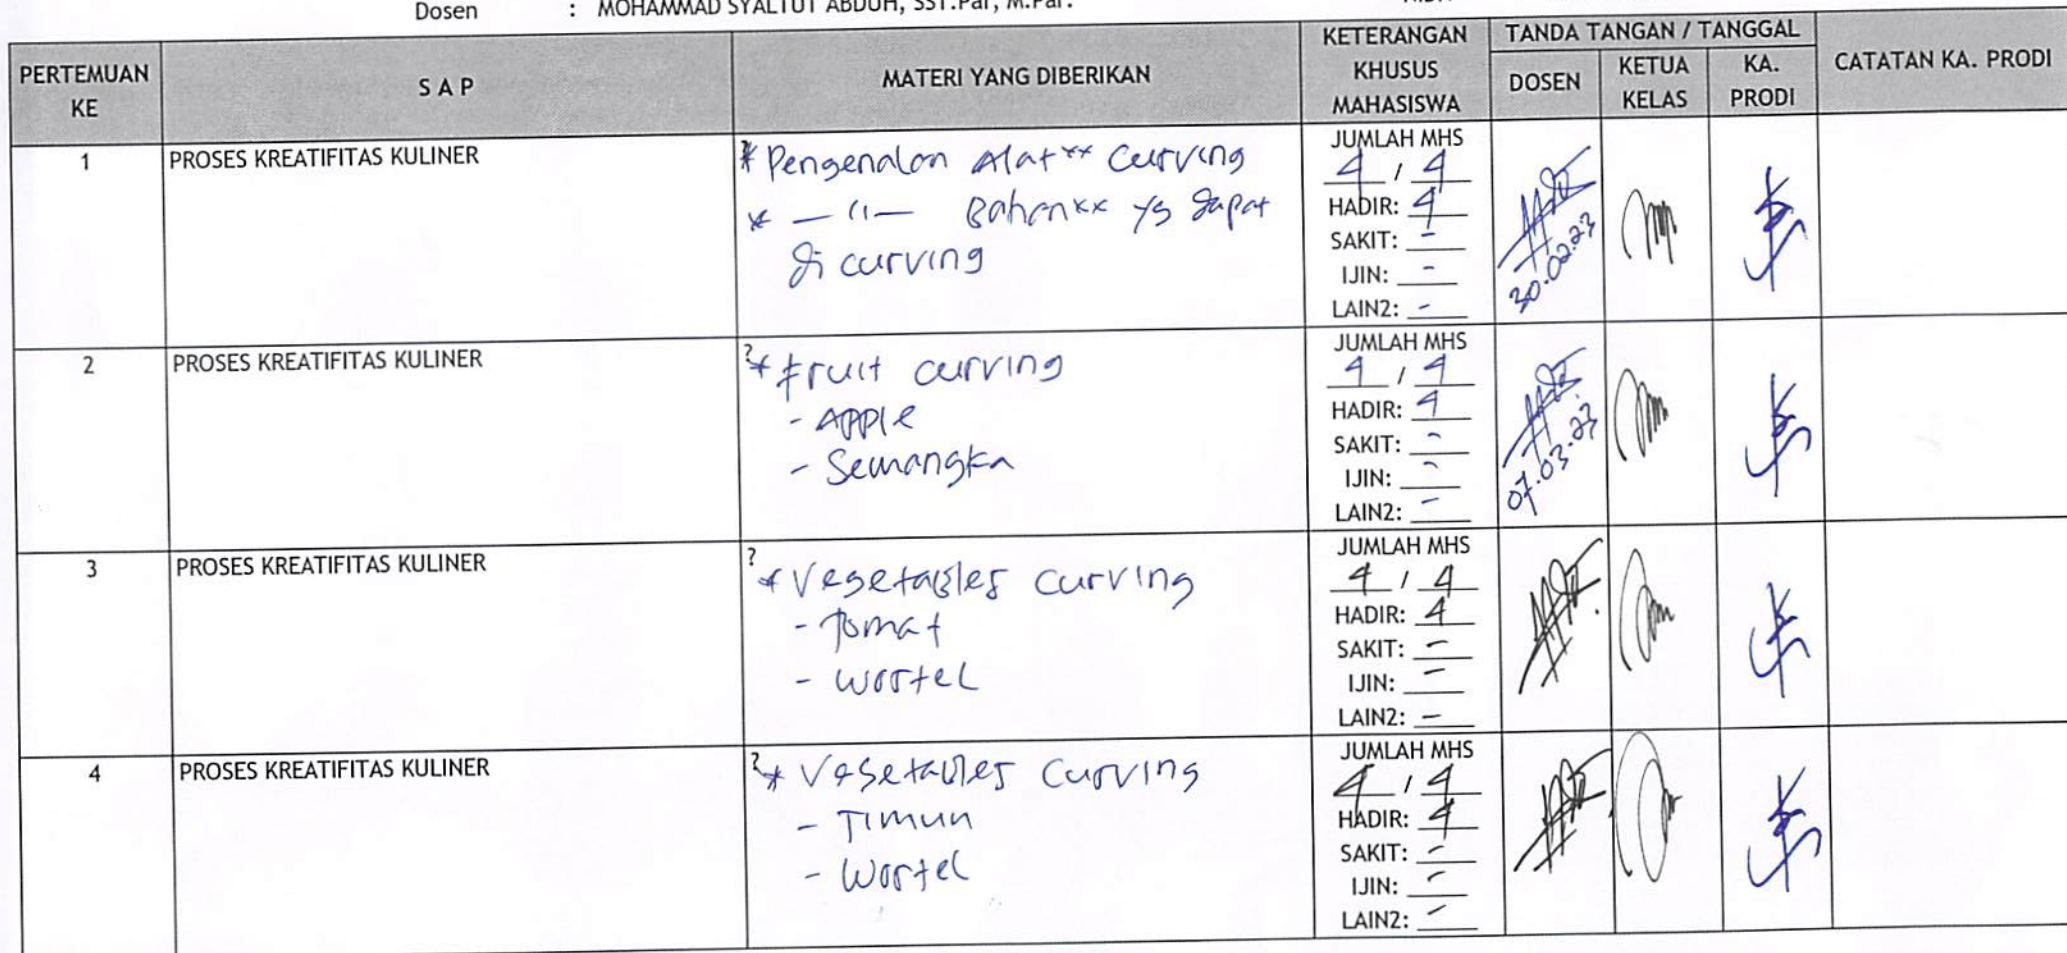 Dosen : MOHAMMAD SYALTUT ABDUH, SST.Par, M.Par.
PERTEMUAN KE
S A P
MATERI YANG DIBERIKAN
KETERANGAN KHUSUS MAHASISWA
TANDA TANGAN / TANGGAL
DOSEN
KETUA KELAS
KA. PRODI
CATATAN KA. PRODI
1
PROSES KREATIFITAS KULINER
* Pengenalan Alat** Curving
* — 〃 — Bahan** yg dapat
di curving
JUMLAH MHS
4 / 4
HADIR: 4
SAKIT: -
IJIN: -
LAIN2: -
30.02.23
2
PROSES KREATIFITAS KULINER
?
* Fruit curving
- Apple
- Semangka
JUMLAH MHS
4 / 4
HADIR: 4
SAKIT: -
IJIN: -
LAIN2: -
07.03.23
3
PROSES KREATIFITAS KULINER
?
* Vegetables curving
- Tomat
- Wortel
JUMLAH MHS
4 / 4
HADIR: 4
SAKIT: -
IJIN: -
LAIN2: -
4
PROSES KREATIFITAS KULINER
?
* Vegetables Curving
- Timun
- Wortel
JUMLAH MHS
4 / 4
HADIR: 4
SAKIT: -
IJIN: -
LAIN2: -